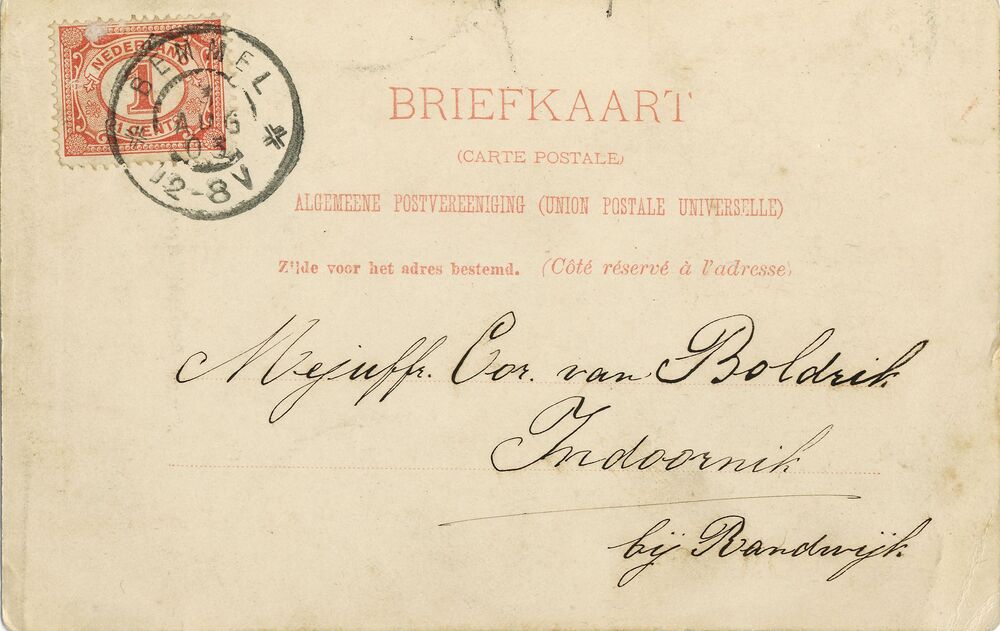 NEDERLAND
1
1 CENT
BEMMEL
AUG
03
12-8V
BRIEFKAART
(CARTE POSTALE)
ALGEMEENE POSTVEREENIGING (UNION POSTALE UNIVERSELLE)
Zijde voor het adres bestemd. (Côté réservé à l'adresse)
Mejuffr. Cor. van Boldrik
Indoornik
bij Randwijk